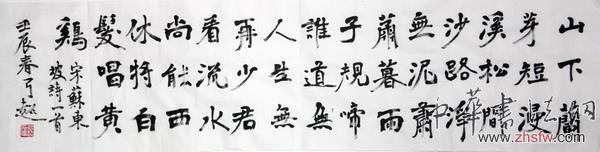 山下蘭
芽短浸
溪松間
沙路淨
無泥蕭
蕭暮雨
子規啼
誰道無
人生無
再少君
看流水
尚能西
休將白
髮唱黃
雞
宋蘇東
坡詩一首
壬辰春
中華書法网
www.zhsfw.com